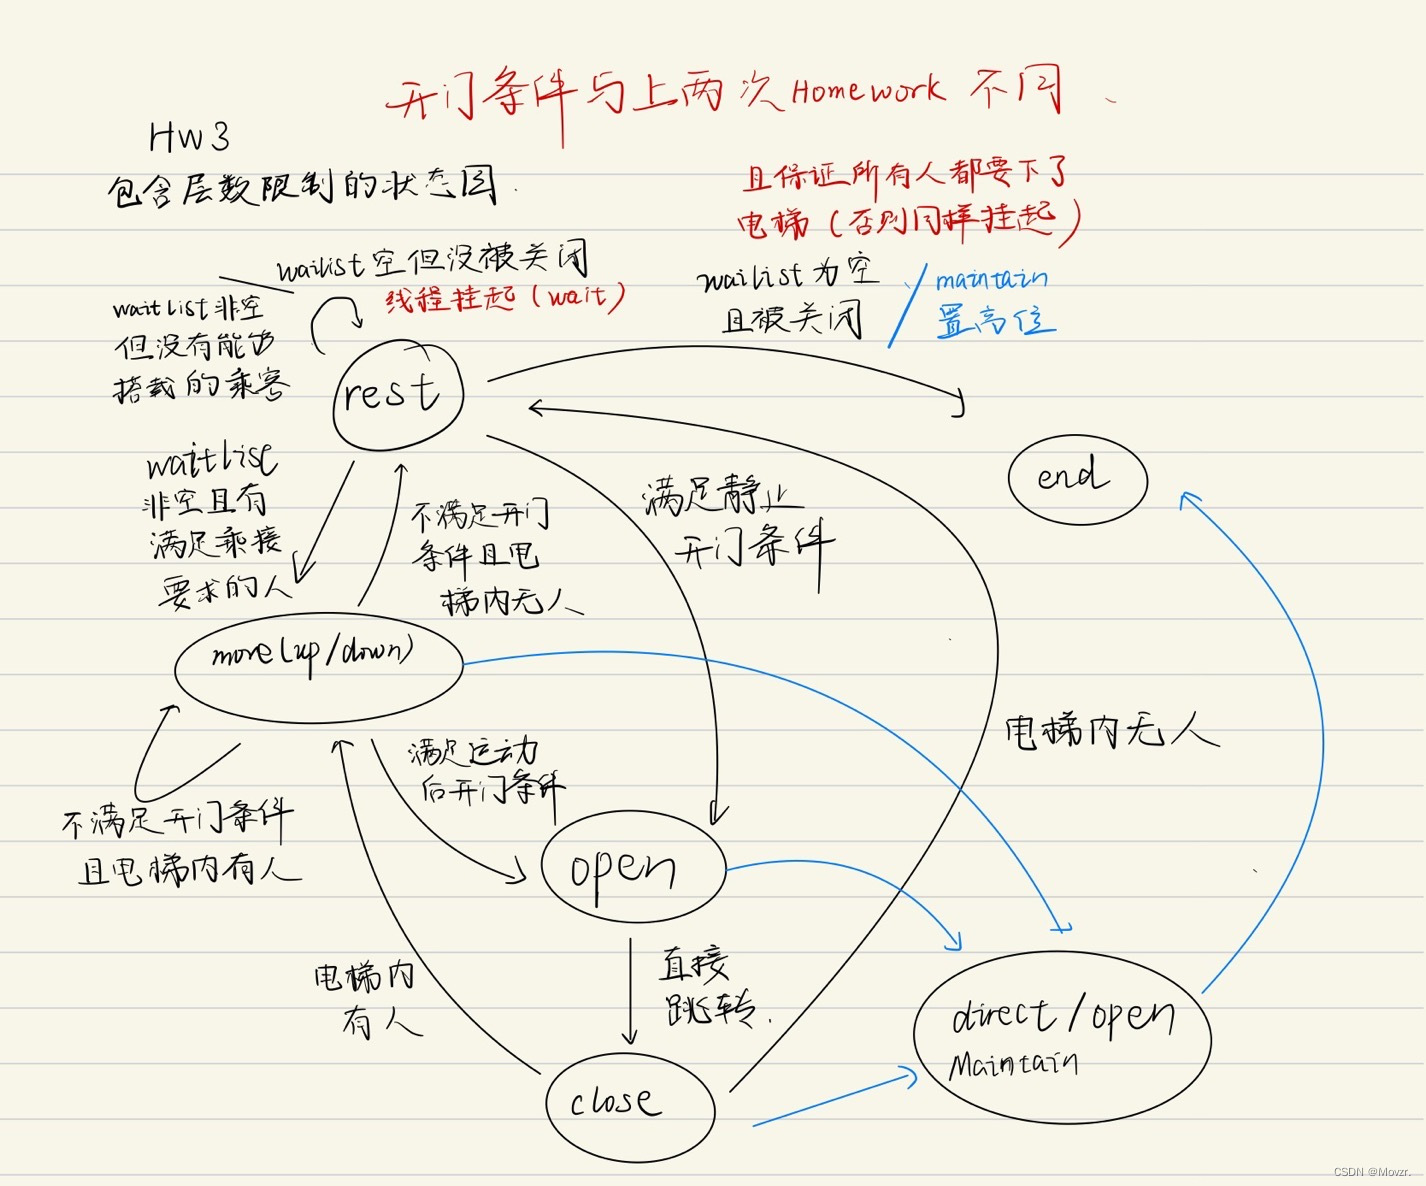 开门条件与上两次Homework 不同.
HW3
包含层数限制的状态图.
且保证所有人都要下了
电梯(否则同样挂起)
wailist空但没被关闭
线程挂起(wait)
waitlist非空
但没有能够
搭载的乘客
wailist为空
且被关闭
maintain
置高位
rest
end
waitlist
非空且有
满足乘接
要求的人
不满足开门
条件且电
梯内无人
满足静止
开门条件
move(up/down)
电梯内无人
满足运动
后开门条件
不满足开门条件
且电梯内有人
open
电梯内
有人
直接
跳转.
direct/open
Maintain
close
CSDN @Movzr.